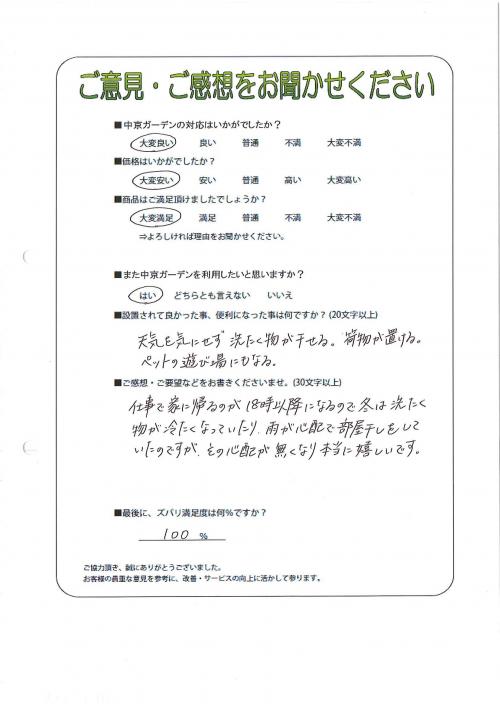 ご意見・ご感想をお聞かせください
■中京ガーデンの対応はいかがでしたか？
大変良い 良い 普通 不満 大変不満
■価格はいかがでしたか？
大変安い 安い 普通 高い 大変高い
■商品はご満足頂けましたでしょうか？
大変満足 満足 普通 不満 大変不満
⇒よろしければ理由をお聞かせください。
■また中京ガーデンを利用したいと思いますか？
はい どちらとも言えない いいえ
■設置されて良かった事、便利になった事は何ですか？(20文字以上)
天気を気にせず洗たく物が干せる。荷物が置ける。
ペットの遊び場にもなる。
■ご感想・ご要望などをお書きくださいませ。(30文字以上)
仕事で家に帰るのが18時以降になるので冬は洗たく
物が冷たくなっていたり、雨が心配で部屋干しをして
いたのですが、その心配が無くなり本当に嬉しいです。
■最後に、ズバリ満足度は何％ですか？
100 %
ご協力頂き、誠にありがとうございました。
お客様の貴重な意見を参考に、改善・サービスの向上に活かして参ります。